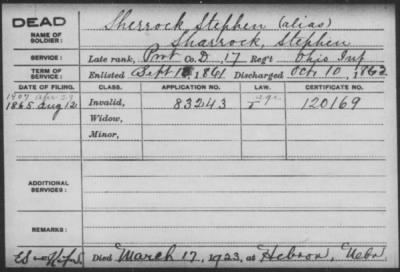 DEAD
NAME OF SOLDIER:
Sherrock Stephen (alias)
Sharrock, Stephen
SERVICE: Late rank, Pvt Co. D, 17 Reg't Ohio Inf
TERM OF SERVICE: Enlisted Sept 1 1861 Discharged Oct. 10, 1862
DATE OF FILING. CLASS. APPLICATION NO. LAW. CERTIFICATE NO.
1907
1865 Aug 12 Invalid, 83243 120169
Widow,
Minor,
ADDITIONAL SERVICES:
REMARKS:
Died March 17, 1923, at Hebron, Nebr